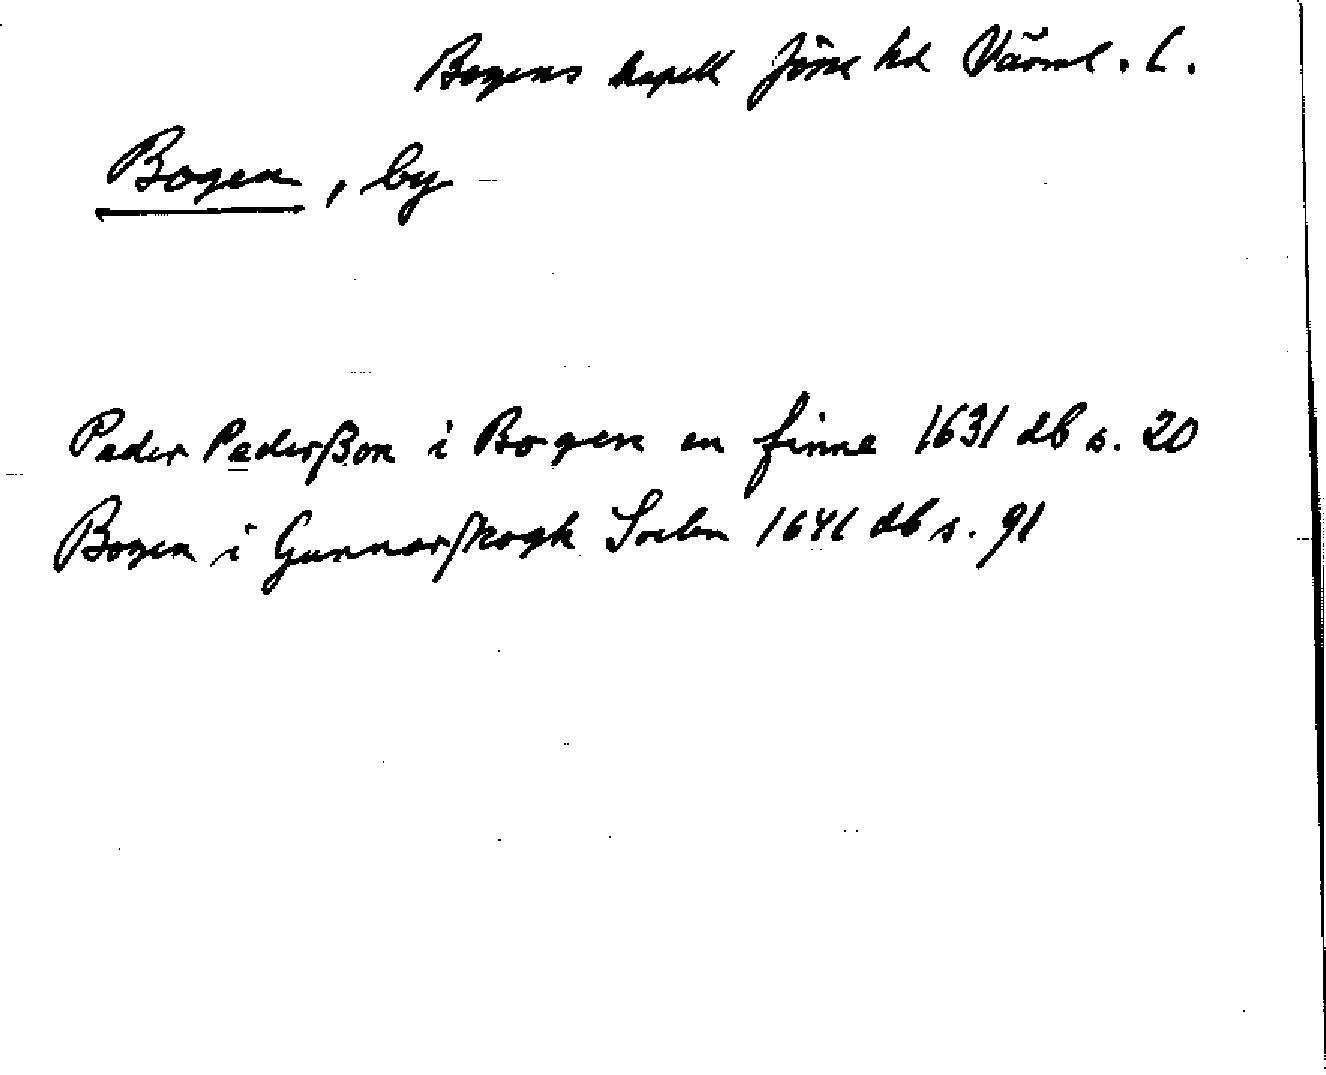 Bogens kapell Jösse hd Värml. l.
Bogen, by
Peder Pederßon i Bogen en finne 1631 db s. 20
Bogen i Gunnarskogh Sochn 1641 db s. 91